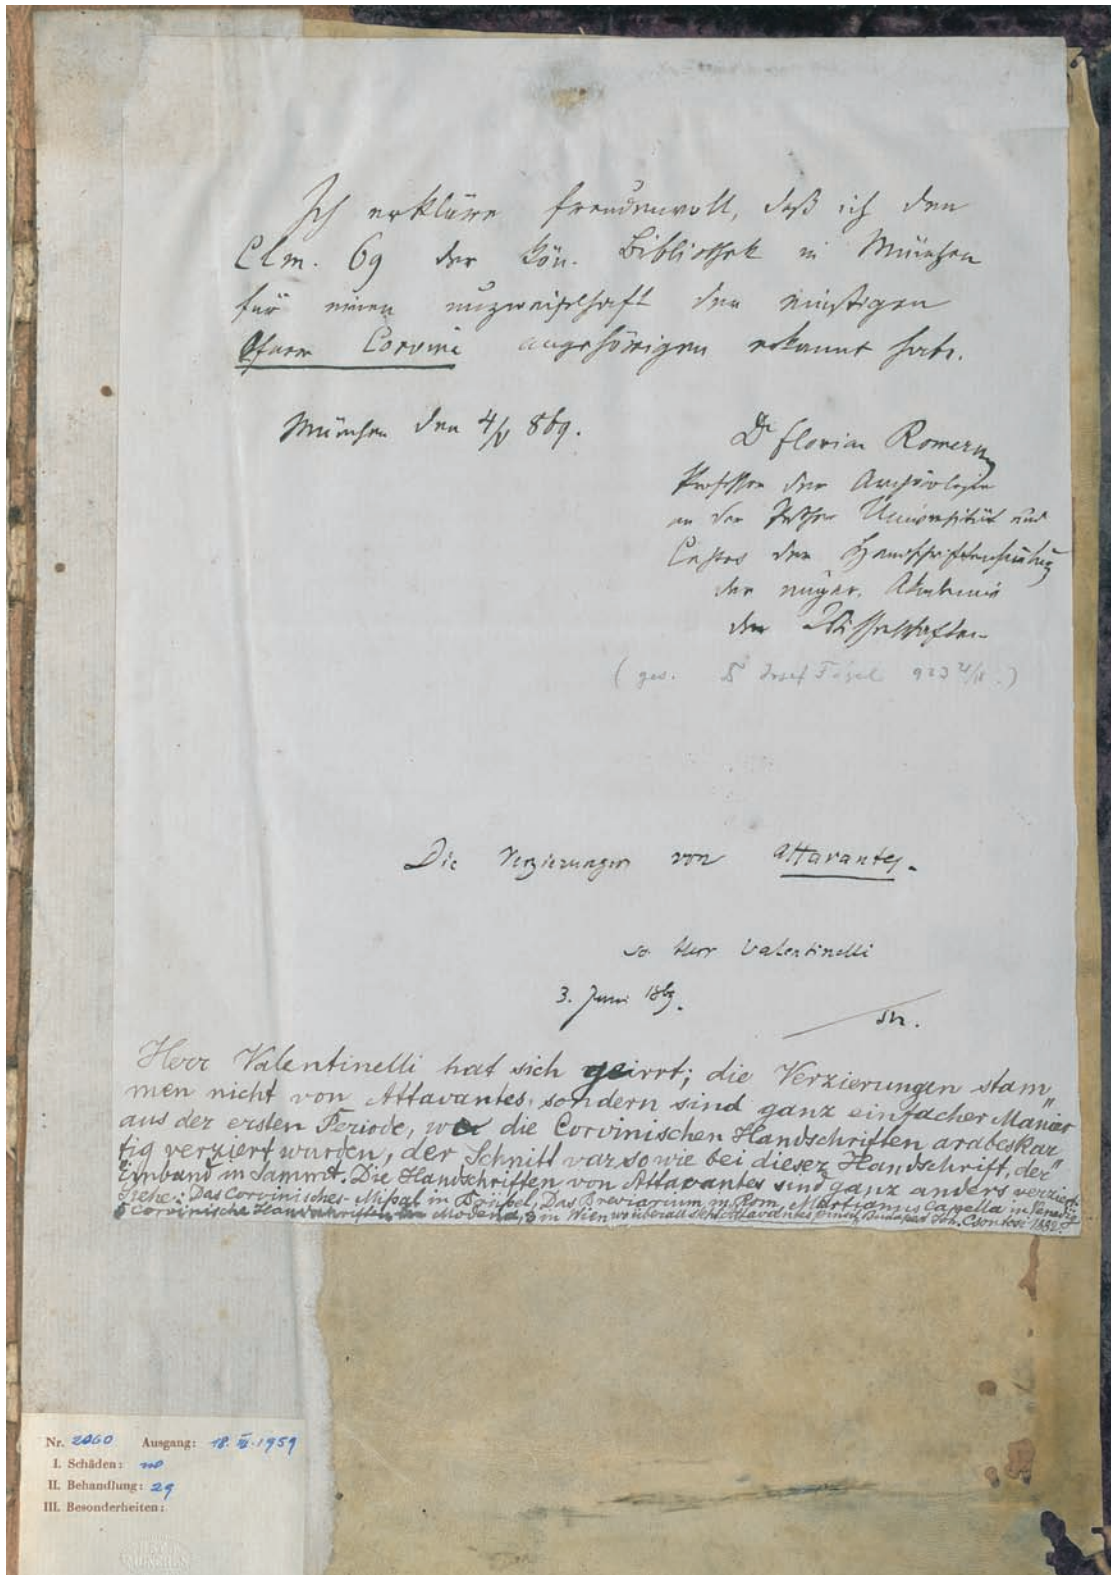 Ich erkläre freudenvoll, daß ich den
Clm. 69 der Kön. Bibliothek in München
für einen unzweifelhaft den einstigen
Ofner Corvina angehörigen erkannt habe.
München den 4/V 869.
Dr Florian Romer
Professor der Archäologie
an der Pesther Universität und
Custos der
der ungar. Akademie
der Wissenschaften
(ges. Dr Josef Fógel 923
Die Verzierungen von Attavantes.
so Herr Valentinelli
3. Juni 1869.
Herr Valentinelli hat sich geirrt; die Verzierungen stam„
men nicht von Attavantes, sondern sind ganz einfacher Manier
aus der ersten Periode, wo die Corvinischen Handschriften arabeskar„
tig verziert wurden, der Schnitt war so wie bei dieser Handschrift, der
Einband in Sammt. Die Handschriften von Attavantes sind ganz anders verziert.
Siehe: Das Corvinisches Missal in Brüssel, Das Breviarium in Rom, Martianus Capella in Venedig
5 Corvinische Handschriften in Modena, 3 in Wien wo überall steht Attavantes pinxit. Budapest Joh. Csontosi 1882.
Nr. 2060 Ausgang: 18. 1959
I. Schäden:
II. Behandlung: 29
III. Besonderheiten: